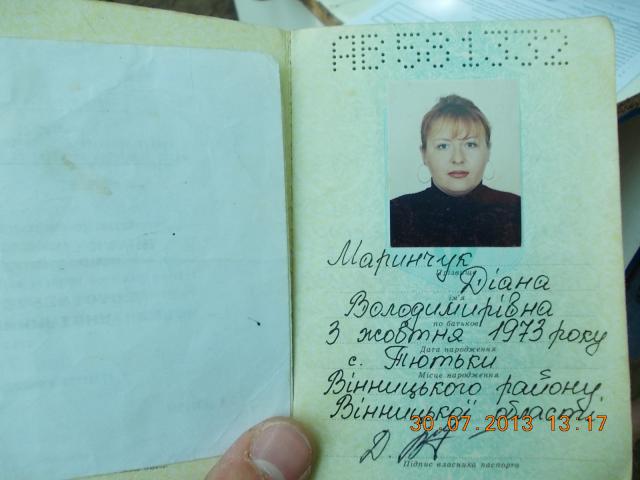 АВ 581332
Маринчук
Прізвище
Діана
ім'я
Володимирівна
по батькові
3 жовтня 1973 року
Дата народження
с. Тютьки
Місце народження
Вінницького району,
Вінницької області
30.07.2013 13:17
Підпис власника паспорта